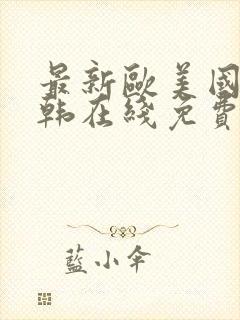 最新歐美國
韩在綫免費
藍小傘